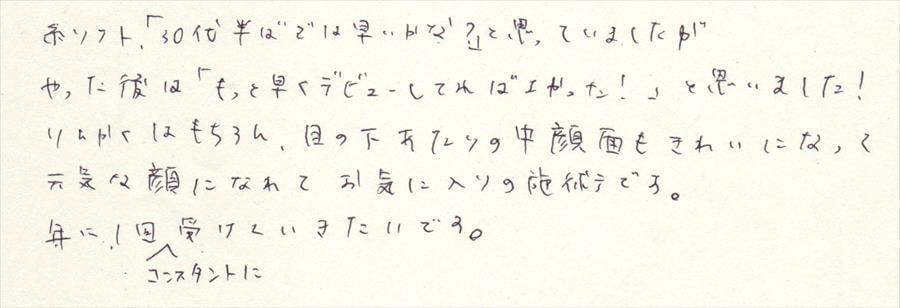 糸リフト、「30代半ばでは早いかな？」と思っていましたが
やった後は「もっと早くデビューしてればよかった！」と思いました！
りんかくはもちろん、目の下あたりの中顔面もきれいになって
元気な顔になれてお気に入りの施術です。
年に1回受けていきたいです。
コンスタントに